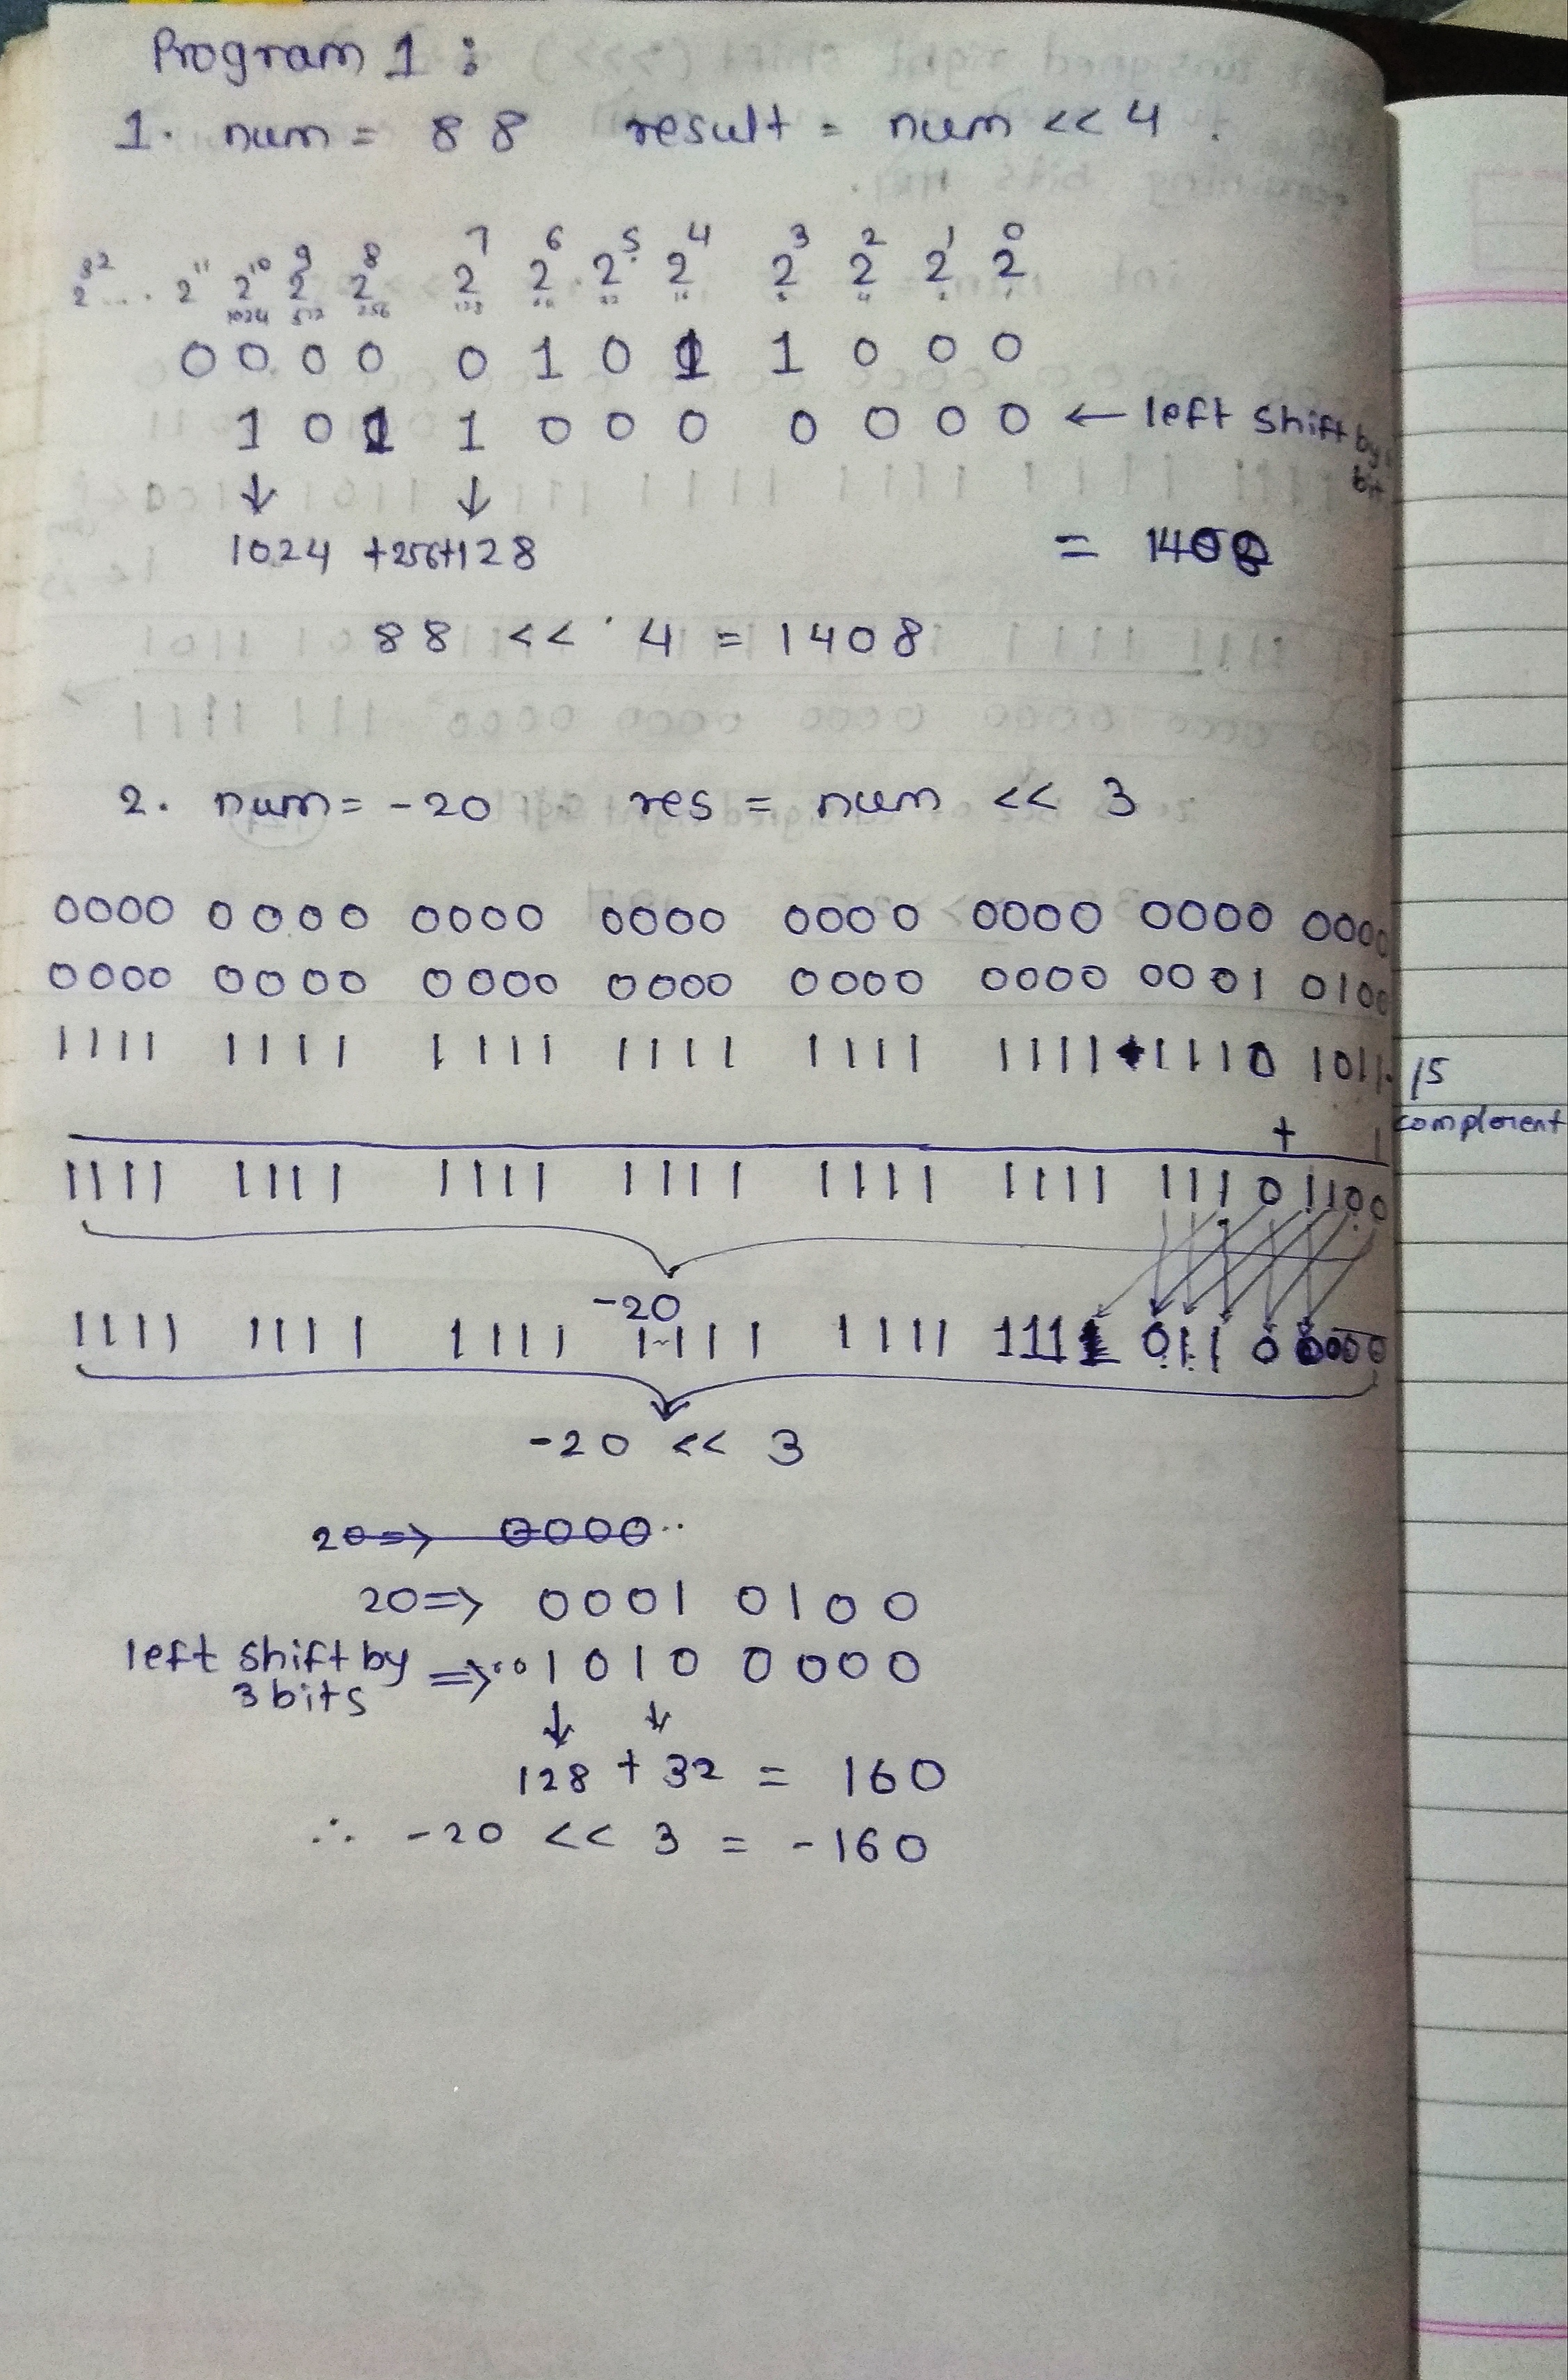 Program 1 :
1. num = 88 result = num << 4 .
2^32 ... 2^11 2^10 2^9 2^8 2^7 2^6 2^5 2^4 2^3 2^2 2^1 2^0
1024 512 256 128 64 32 16 8 4 2 1
0 0 0 0 0 1 0 1 1 0 0 0
1 0 1 1 0 0 0 0 0 0 0 ← left shift by bit
↓ ↓
1024 +256+128 = 1408
88 << 4 = 1408
2. num = -20 res = num << 3
0000 0000 0000 0000 0000 0000 0000 0000
0000 0000 0000 0000 0000 0000 0001 0100
1111 1111 1111 1111 1111 1111 1110 1011 1s
complement
+ 1
1111 1111 1111 1111 1111 1111 1110 1100
-20
1111 1111 1111 1111 1111 1111 011 0 0000
-20 << 3
20 => 0000..
20 => 0001 0100
left shift by 3 bits => ..0 1010 0000
↓ ↓
128 + 32 = 160
∴ -20 << 3 = -160